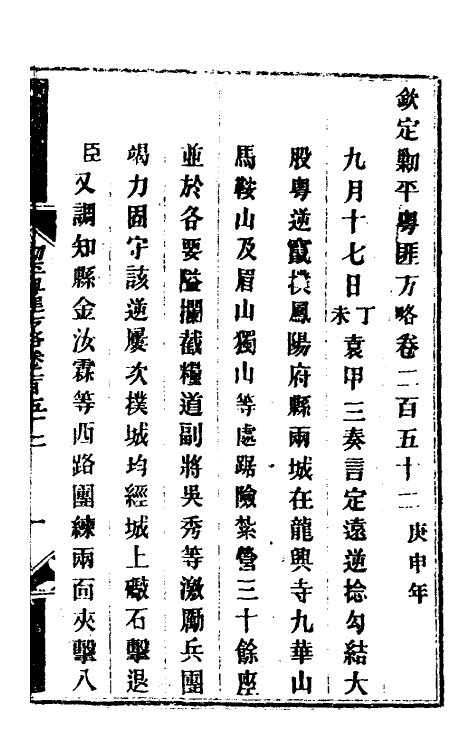 欽定勦平粵匪方略卷二百五十二 庚申年
九月十七日丁未袁甲三奏言定遠逆捻勾結大
股粵逆竄撲鳳陽府縣兩城在龍興寺九華山
馬鞍山及眉山獨山等處踞險紮營三十餘座
並於各要隘攔截糧道副將吳秀等激勵兵團
竭力固守該逆屢次撲城均經城上礮石擊退
臣又調知縣金汝霖等西路團練兩面夾擊八